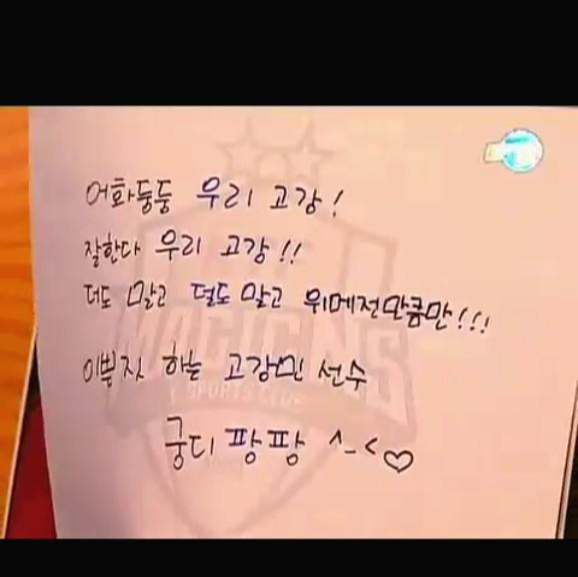 어화둥둥 우리 고강!
잘한다 우리 고강!!
더도 말고 덜도 말고 위메전만큼만!!!
이쁜짓 하는 고강민 선수
궁디 팡팡 ^_<♡
MAGICNS
ESPORTS CLUB